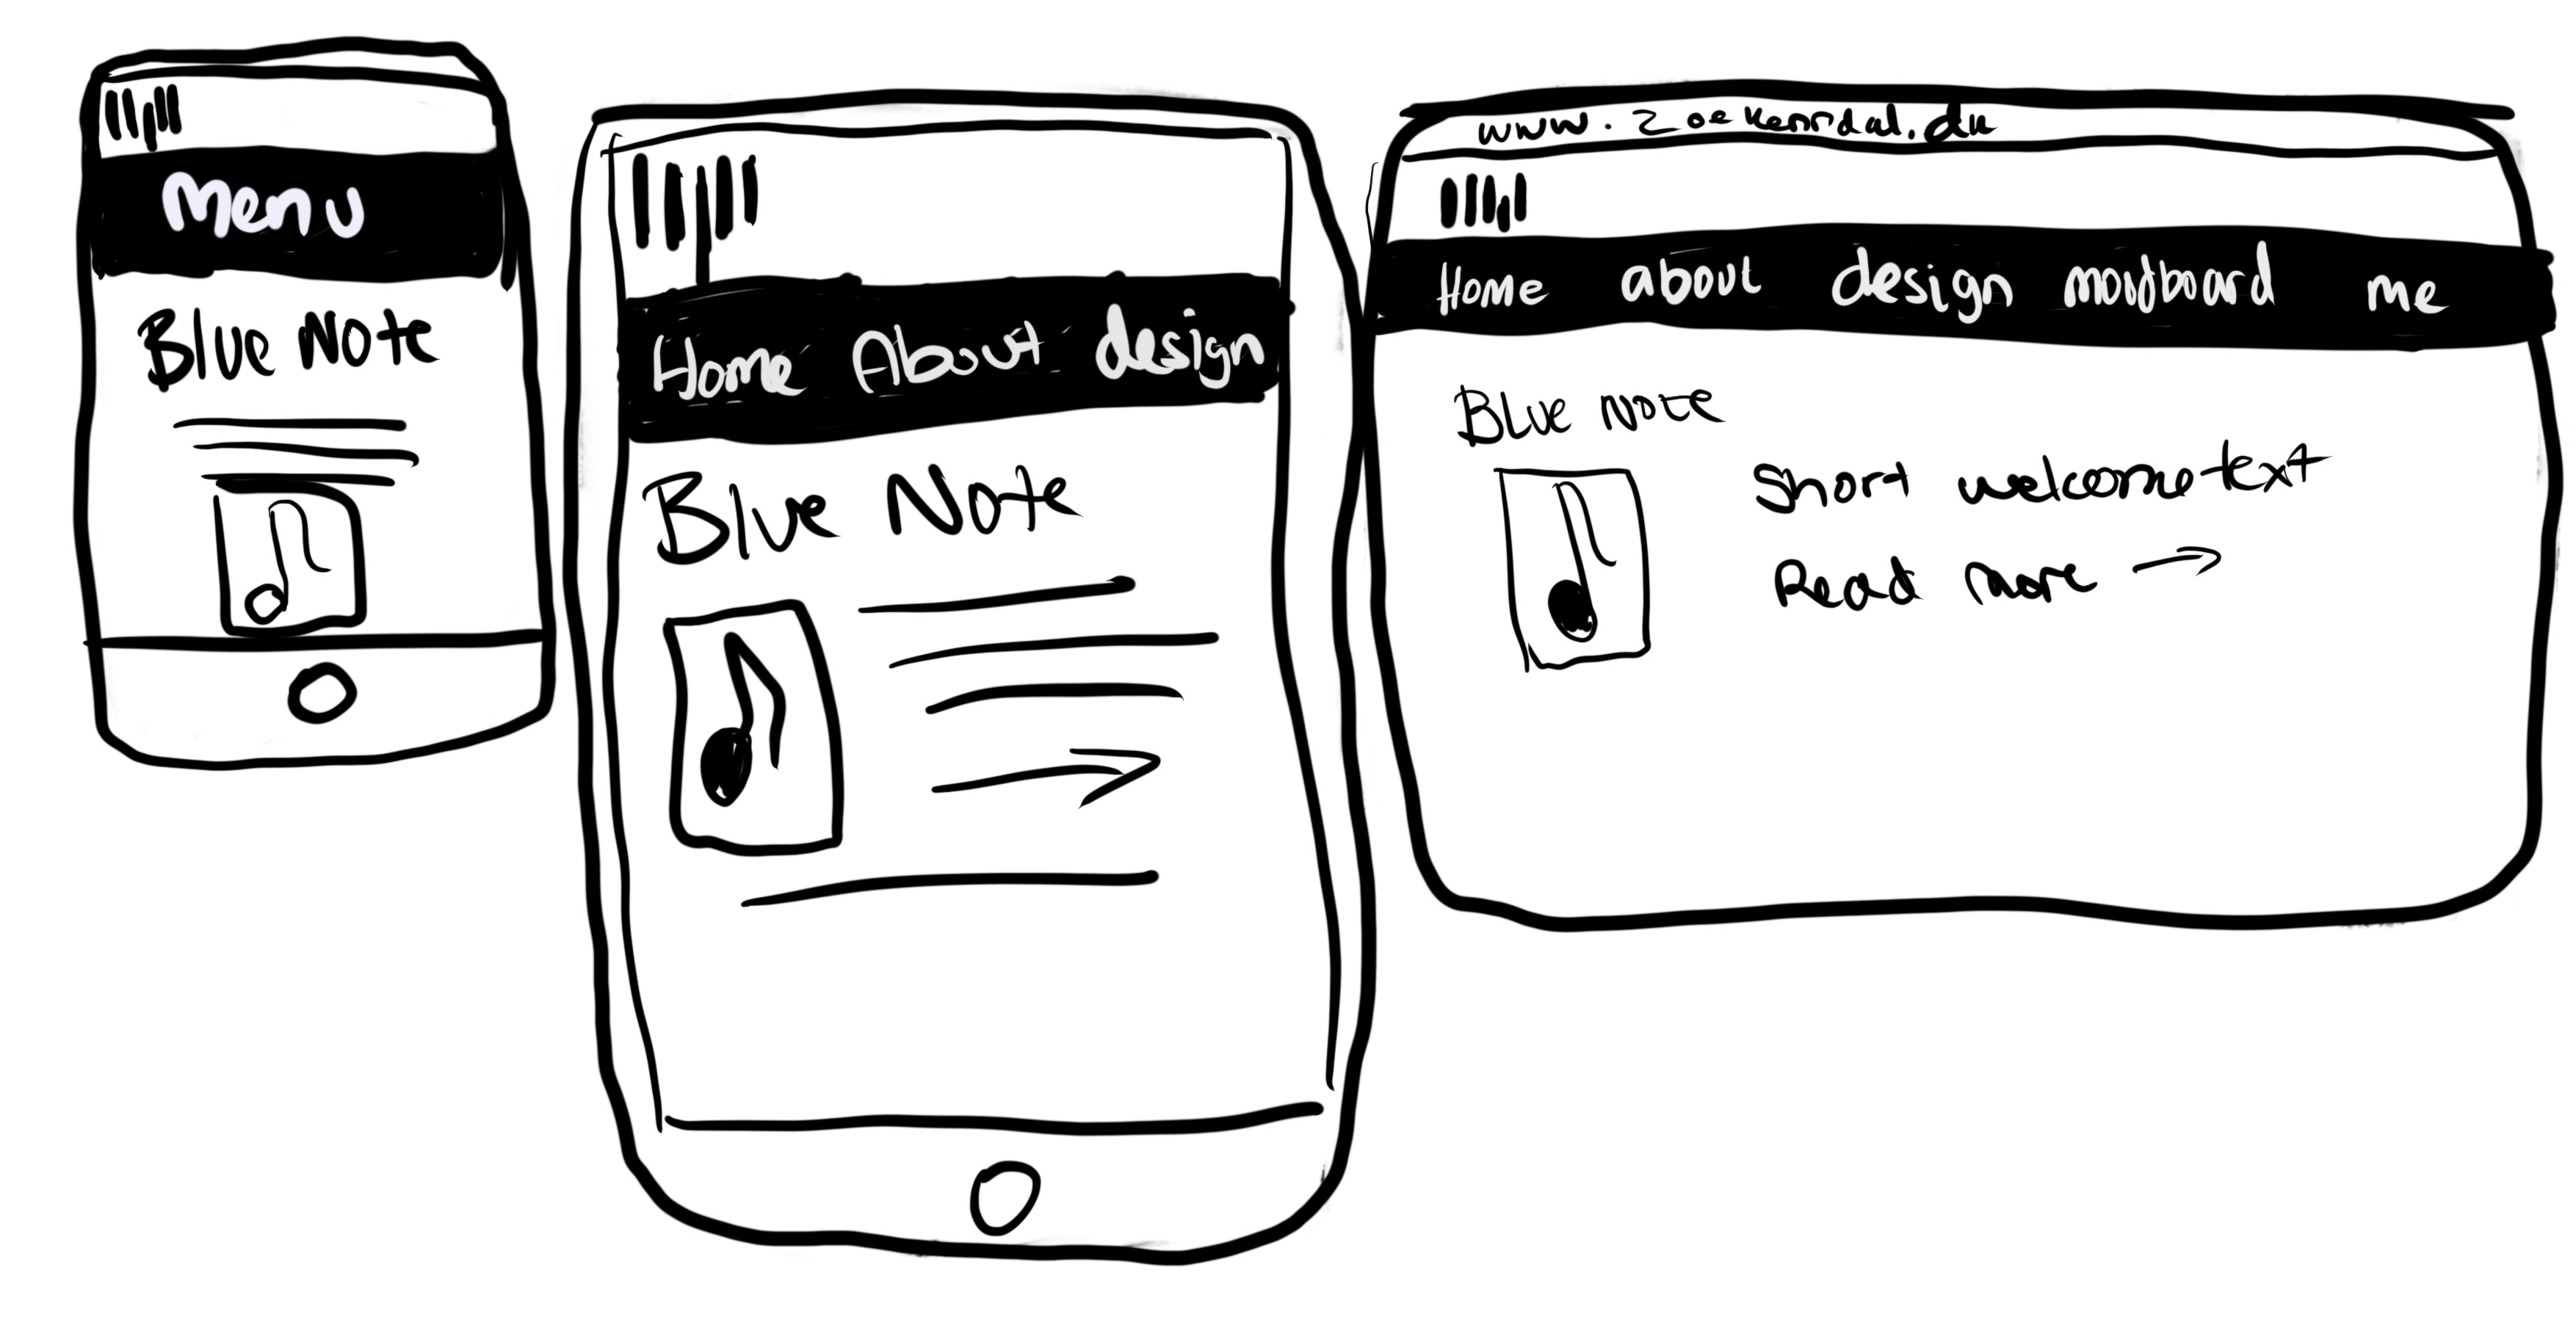 Menu
Blue Note
Home About design
Blue Note
www.zoekenrdal.dk
Home about design moodboard me
Blue Note
Short welcome text
Read more →